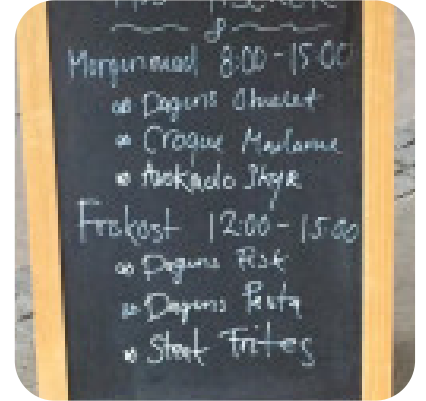 Morgunmad 8:00-15:00
Dagens Omelet
Croque Madame
Avokado Skyr
Frokost 12:00-15:00
Dagens Fisk
Dagens Pasta
Steak Frites